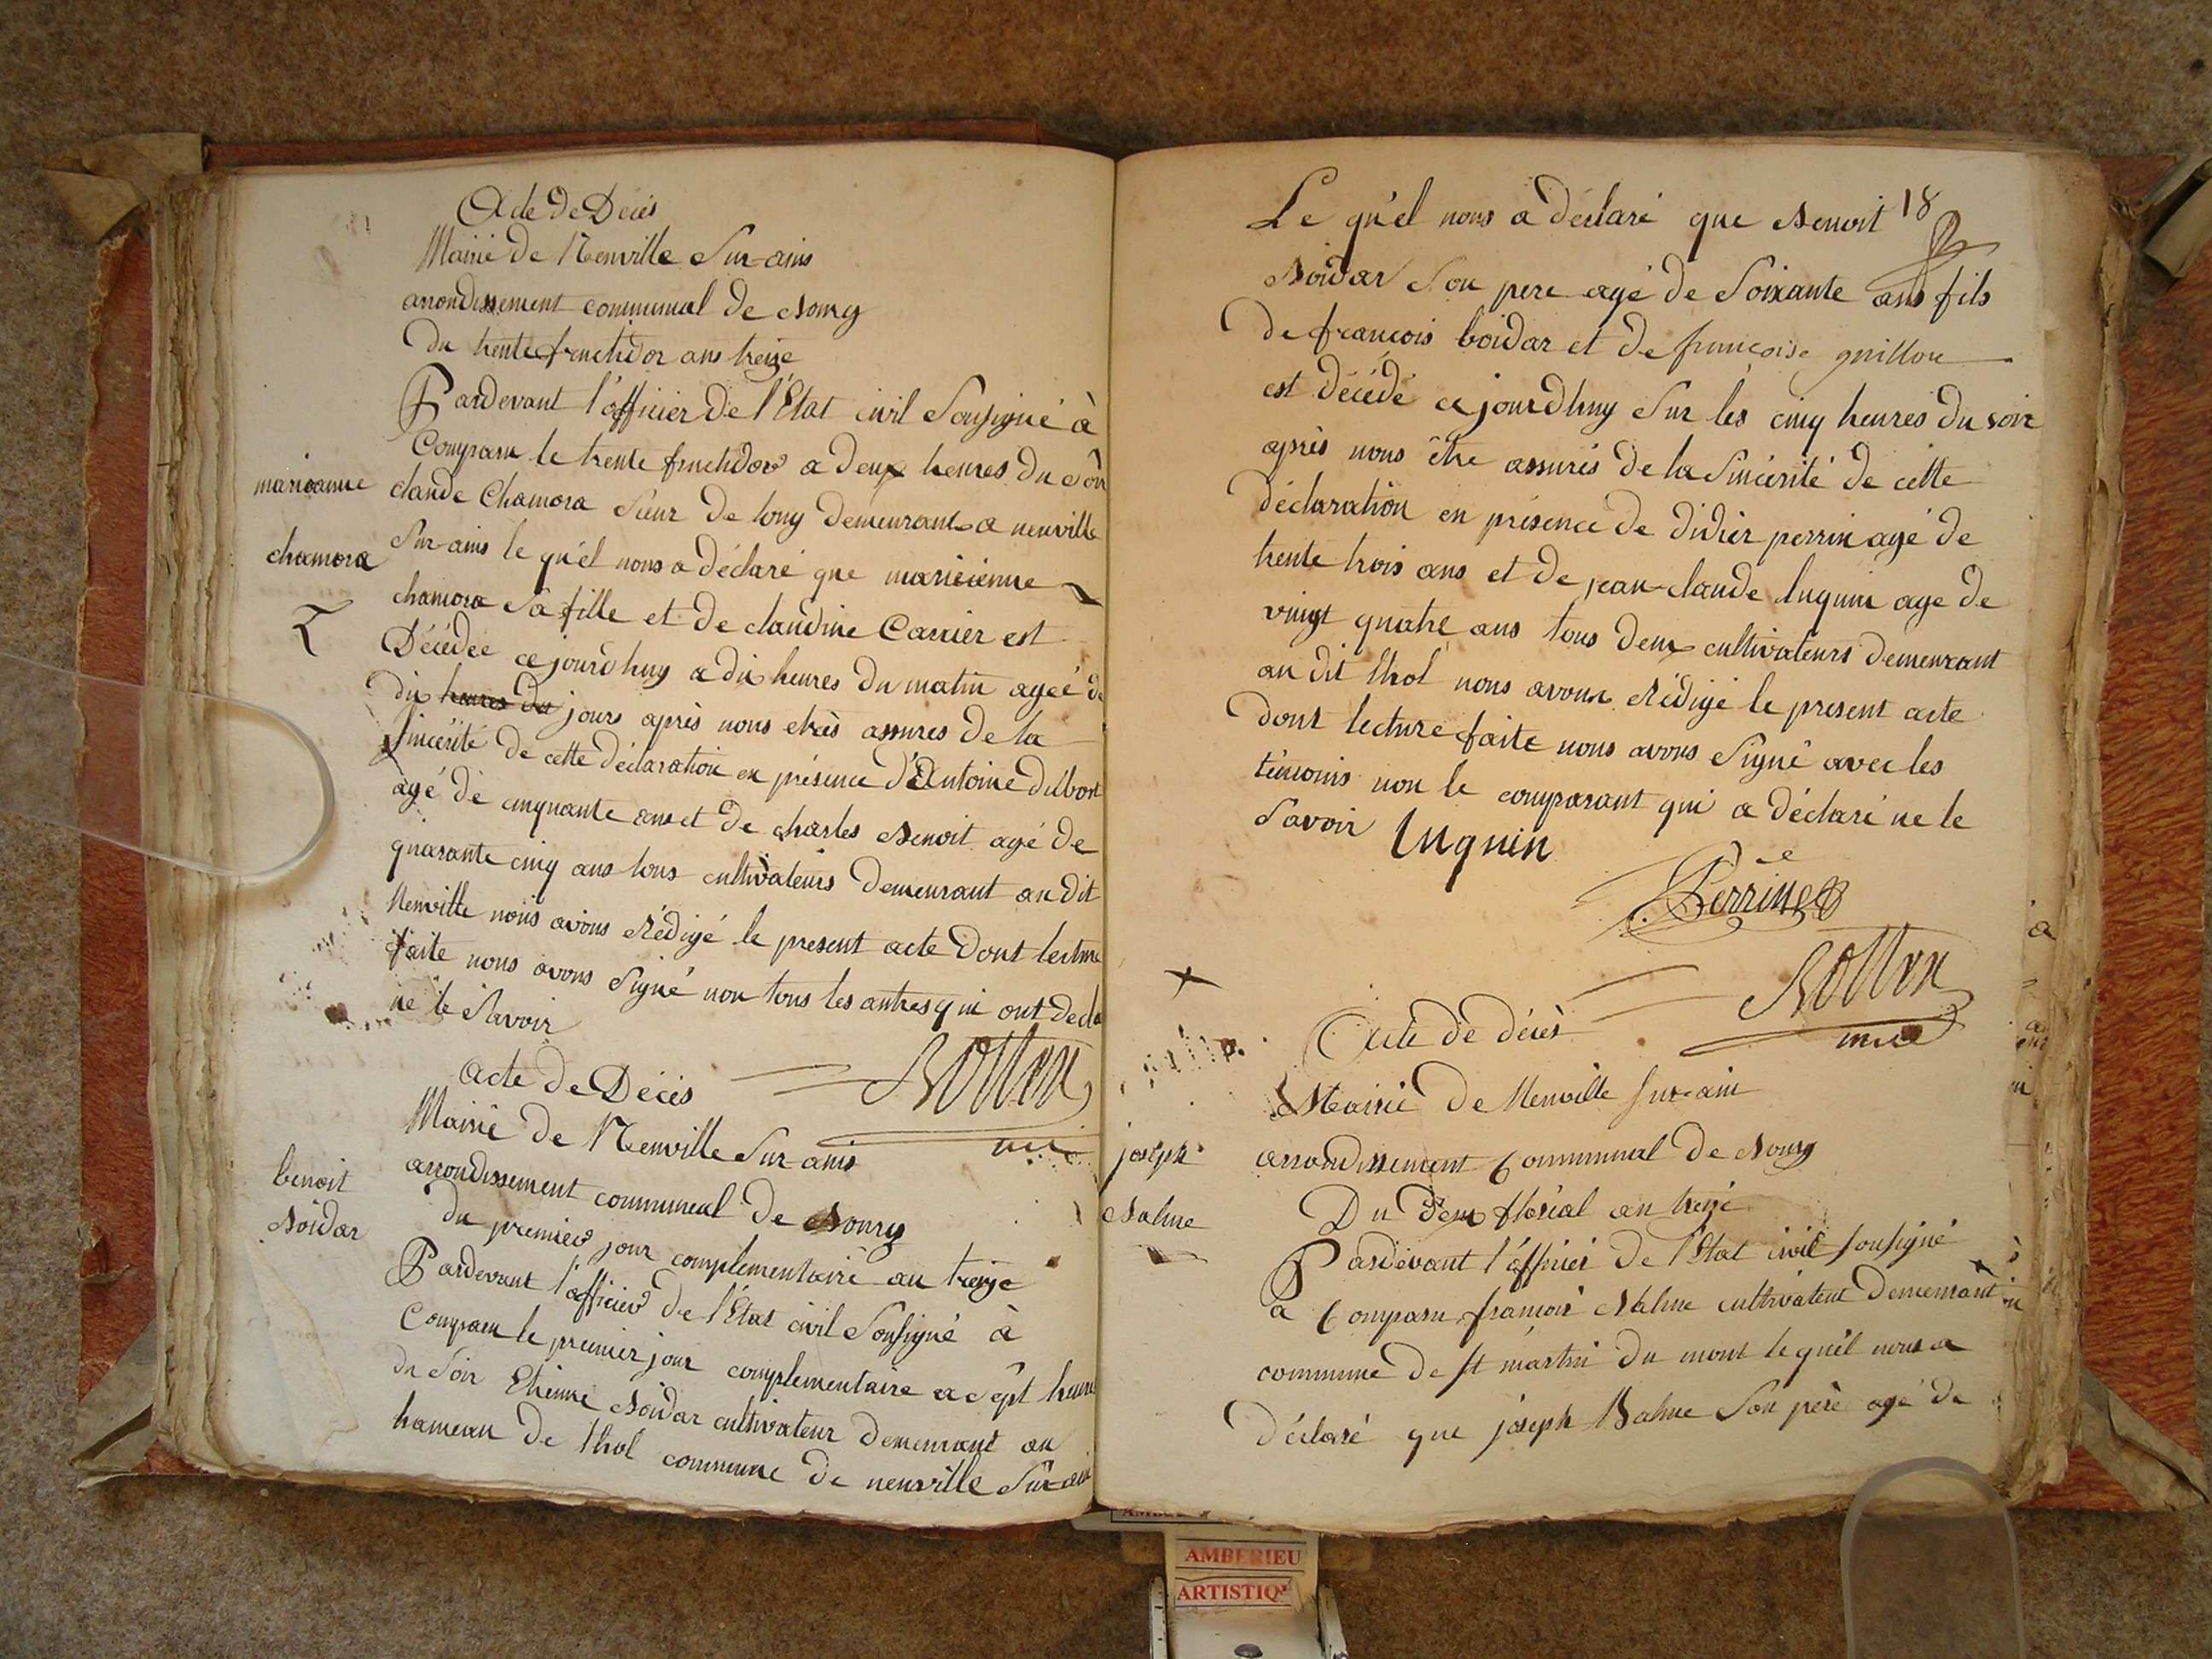 Acte De Decès
Mairie De Neuville Sur-ains
arrondissement communal De Bourg
Du trente fructidor ans treize
Pardevant l'officier De l'Etat civil Sousigné à
Comparu le trente fructidor a deux heures Du Soir
marieanne
claude Chamora Sieur De long demeurant a neuville
Sur-ains le qu'el nous a déclaré que marieienne
chamora
chamora Sa fille et De claudine Carrier est
Décédée cejourdhuy a dix heures Du matin agée de
dix heures du jours après nous etrès assures De la
Sincérité De cette déclaration en présence D'Antoine Dubost
agé de cinquante ans et De charles Benoit agé De
quarante cinq ans tous cultivateurs Demeurant au dit
Neuville nous avons Rédigé le present acte Dont lecture
faite nous avons Signé non tous les autres qui ont decla
ne le Savoir
Acte De Décès
Mairie De Neuville Sur-ains
arrondissement communeal De Bourg
benoit
Boidar
Du premier jour complementairé an treize
Pardevant l'officier De l'Etat civil Sousigné à
Comparu le premier jour complementaire a Sept heures
Du Soir Etienne Boidar cultivateur Demeurant au
hameau De thol commune De neuville Sur-ain
Le qu'el nous a déclaré que Benoit
18
Boidar Son pere agé De Soixante ans fils
De francois boidar et De francoise guillon
est décédé cejourdhuy Sur les cinq heures Du soir
après nous être assurés De la Sincérité De cette
Déclaration en présence De Didier perrin agé De
trente trois ans et De jean-claude luquin age De
vingt quatre ans tous Deux cultivateurs Demeurant
au dit thol nous avons Rédigé le present acte
Dont lecture faite nous avons Signé avec les
témoins non le comparant qui a déclaré ne le
Savoir
luquin
Perrin
Acte de décès
Mairie De Neuville sur-ain
joseph
Balme
arrondissement Communal De Bourg
Du Deux floréal an treize
Pardevant l'officier De l'Etat civil sousigné
a Comparu francois Balme cultivateur Demeurant
commune De st martin Du mont le quel nous a
Déclaré que joseph Balme Son père agé De
AMBERIEU
ARTISTIQ